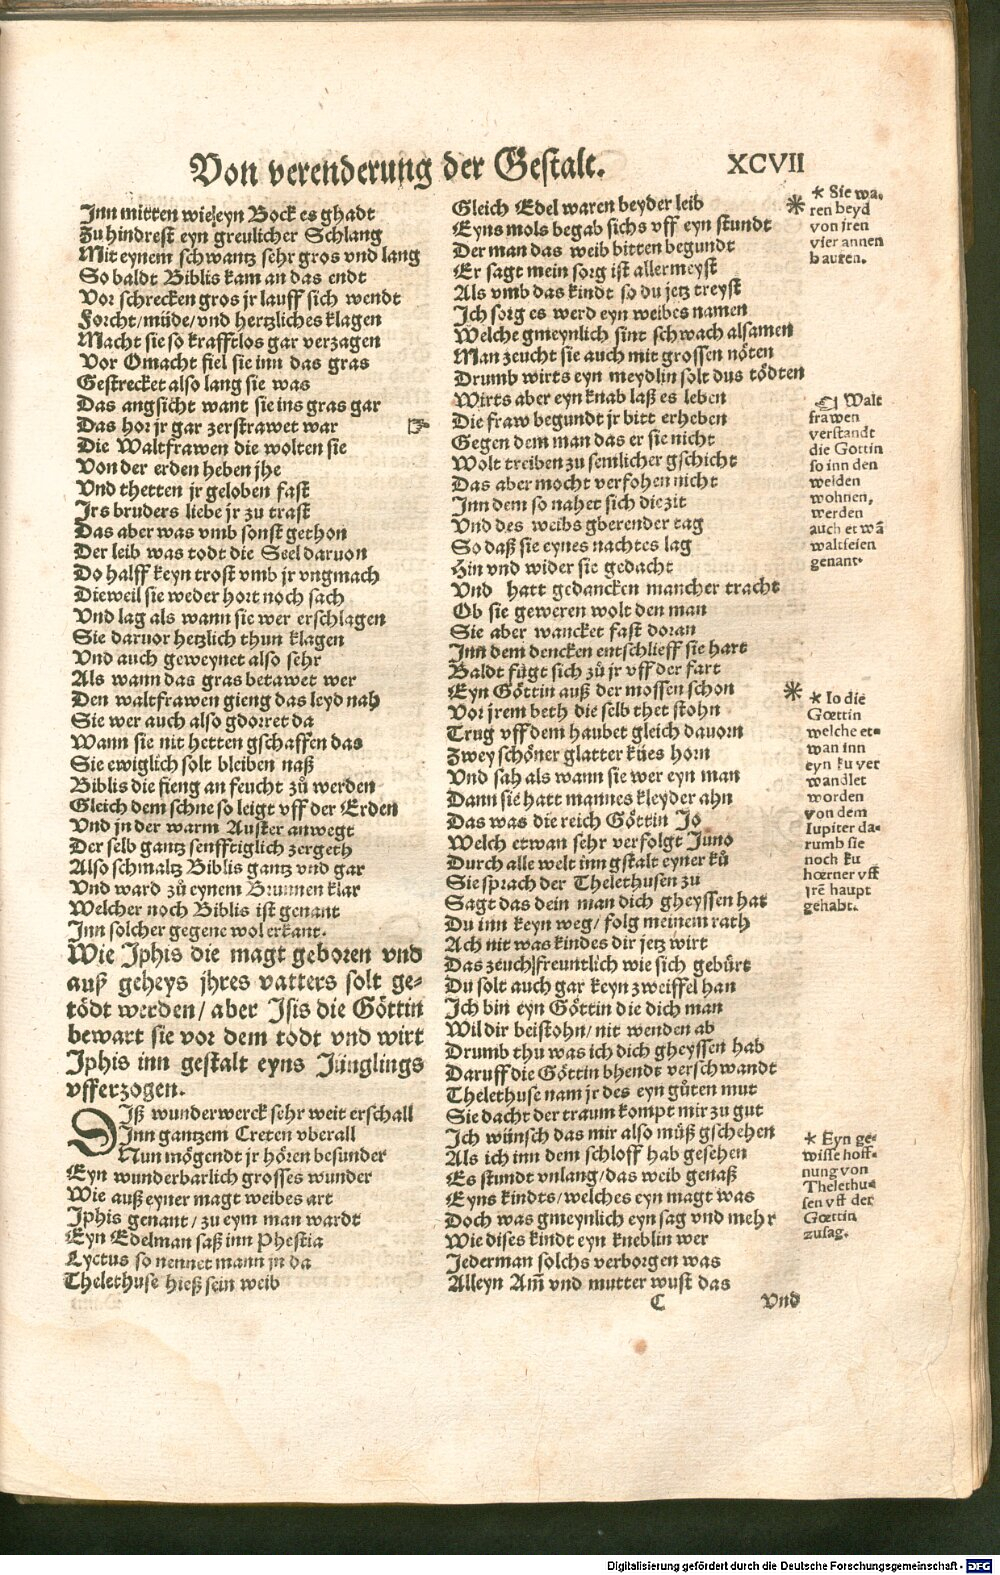 Von verenderung der Gestalt.
XCVII
Inn mitten wie eyn Bock es ghadt
Zu hindrest eyn greulicher Schlang
Mit eynem schwantz sehr gros vnd lang
So baldt Biblis kam an das endt
Vor schrecken gros jr lauff sich wendt
Forcht/müde/vnd hertzliches klagen
Macht sie so krafftlos gar verzagen
Vor Omacht fiel sie inn das gras
Gestrecket also lang sie was
Das angsicht want sie ins gras gar
Das hor jr gar zerstrawet war
Die Waltfrawen die wolten sie
Von der erden heben jhe
Vnd thetten jr geloben fast
Irs bruders liebe jr zu trast
Das aber was vmb sonst gethon
Der leib was todt die Seel daruon
Do halff keyn trost vmb jr vngmach
Dieweil sie weder hort noch sach
Vnd lag als wann sie wer erschlagen
Sie daruor hetzlich thun klagen
Vnd auch geweynet also sehr
Als wann das gras betawet wer
Den waltfrawen gieng das leyd nah
Sie wer auch also gdorret da
Wann sie nit hetten gschaffen das
Sie ewiglich solt bleiben naß
Biblis die fieng an feucht zů werden
Gleich dem schne so leigt vff der Erden
Vnd jn der warm Auster anwegt
Der selb gantz senfftiglich zergeth
Also schmaltz Biblis gantz vnd gar
Vnd ward zů eynem Brunnen klar
Welcher noch Biblis ist genant
Inn solcher gegene wol erkant.
Wie Iphis die magt geboren vnd
auß geheys jhres vatters solt ge-
tödt werden/ aber Isis die Göttin
bewart sie vor dem todt vnd wirt
Iphis inn gestalt eyns Jünglings
vfferzogen.
Diß wunderwerck sehr weit erschall
Inn gantzem Creten vberall
Nun mögendt jr hören besunder
Eyn wunderbarlich grosses wunder
Wie auß eyner magt weibes art
Iphis genant/ zu eym man wardt
Eyn Edelman saß inn Phestia
Lyctus so nennet mann jn da
Thelethuse hieß sein weib
Gleich Edel waren beyder leib
Eyns mols begab sichs vff eyn stundt
Der man das weib bitten begundt
Er sagt mein sorg ist allermeyst
Als vmb das kindt so du jetz treyst
Ich sorg es werd eyn weibes namen
Welche gmeynlich sint schwach alsamen
Man zeucht sie auch mit grossen nöten
Drumb wirts eyn meydlin solt dus tödten
Wirts aber eyn knab laß es leben
Die fraw begundt jr bitt erheben
Gegen dem man das er sie nicht
Wolt treiben zu semlicher gschicht
Das aber mocht verfohen nicht
Inn dem so nahet sich die zit
Vnd des weibs gberender tag
So daß sie eynes nachtes lag
Hin vnd wider sie gedacht
Vnd hatt gedancken mancher tracht
Ob sie geweren wolt den man
Sie aber wancket fast doran
Inn dem dencken entschlieff sie hart
Baldt fügt sich zů jr vff der fart
Eyn Göttin auß der mossen schon
Vor jrem beth die selb thet stohn
Trug vff dem haubet gleich dauorn
Zwey schöner glatter kües horn
Vnd sah als wann sie wer eyn man
Dann sie hatt mannes kleyder ahn
Das was die reich Göttin Jo
Welch etwan sehr verfolgt Juno
Durch alle welt inn gstalt eyner ků
Sie sprach der Thelethusen zu
Sagt das dein man dich gheyssen hat
Du inn keyn weg/ folg meinem rath
Ach nit was kindes dir jetz wirt
Das zeuch freuntlich wie sich gebürt
Du solt auch gar keyn zweiffel han
Ich bin eyn Göttin die dich man
Wil dir beistohn/ nit wenden ab
Drumb thu was ich dich gheyssen hab
Daruff die Göttin bhendt verschwandt
Thelethuse nam jr des eyn gůten mut
Sie dacht der traum kompt mir zu gut
Ich wünsch das mir also můß gschehen
Als ich inn dem schloff hab gesehen
Es stundt vnlang/ das weib genaß
Eyns kindts/ welches eyn magt was
Doch was gmeynlich eyn sag vnd mehr
Wie dises kindt eyn kneblin wer
Jederman solchs verborgen was
Alleyn Am̃ vnd mutter wust das
C
Vnd
* Sie wa-
ren beyd
von jren
vier annen
bauren.
Walt
frawen
verstandt
die Gottin
so inn den
welden
wohnen,
werden
auch etwã
waltfeien
genant.
* Io die
Gœttin
welche et-
wan inn
eyn ku ver
wandlet
worden
von dem
Iupiter da-
rumb sie
noch ku
hœrner vff
jrẽ haupt
gehabt.
* Eyn ge-
wisse hoff-
nung von
Thelethu-
sen vff der
Gœttin
zusag.
Digitalisierung gefördert durch die Deutsche Forschungsgemeinschaft - DFG